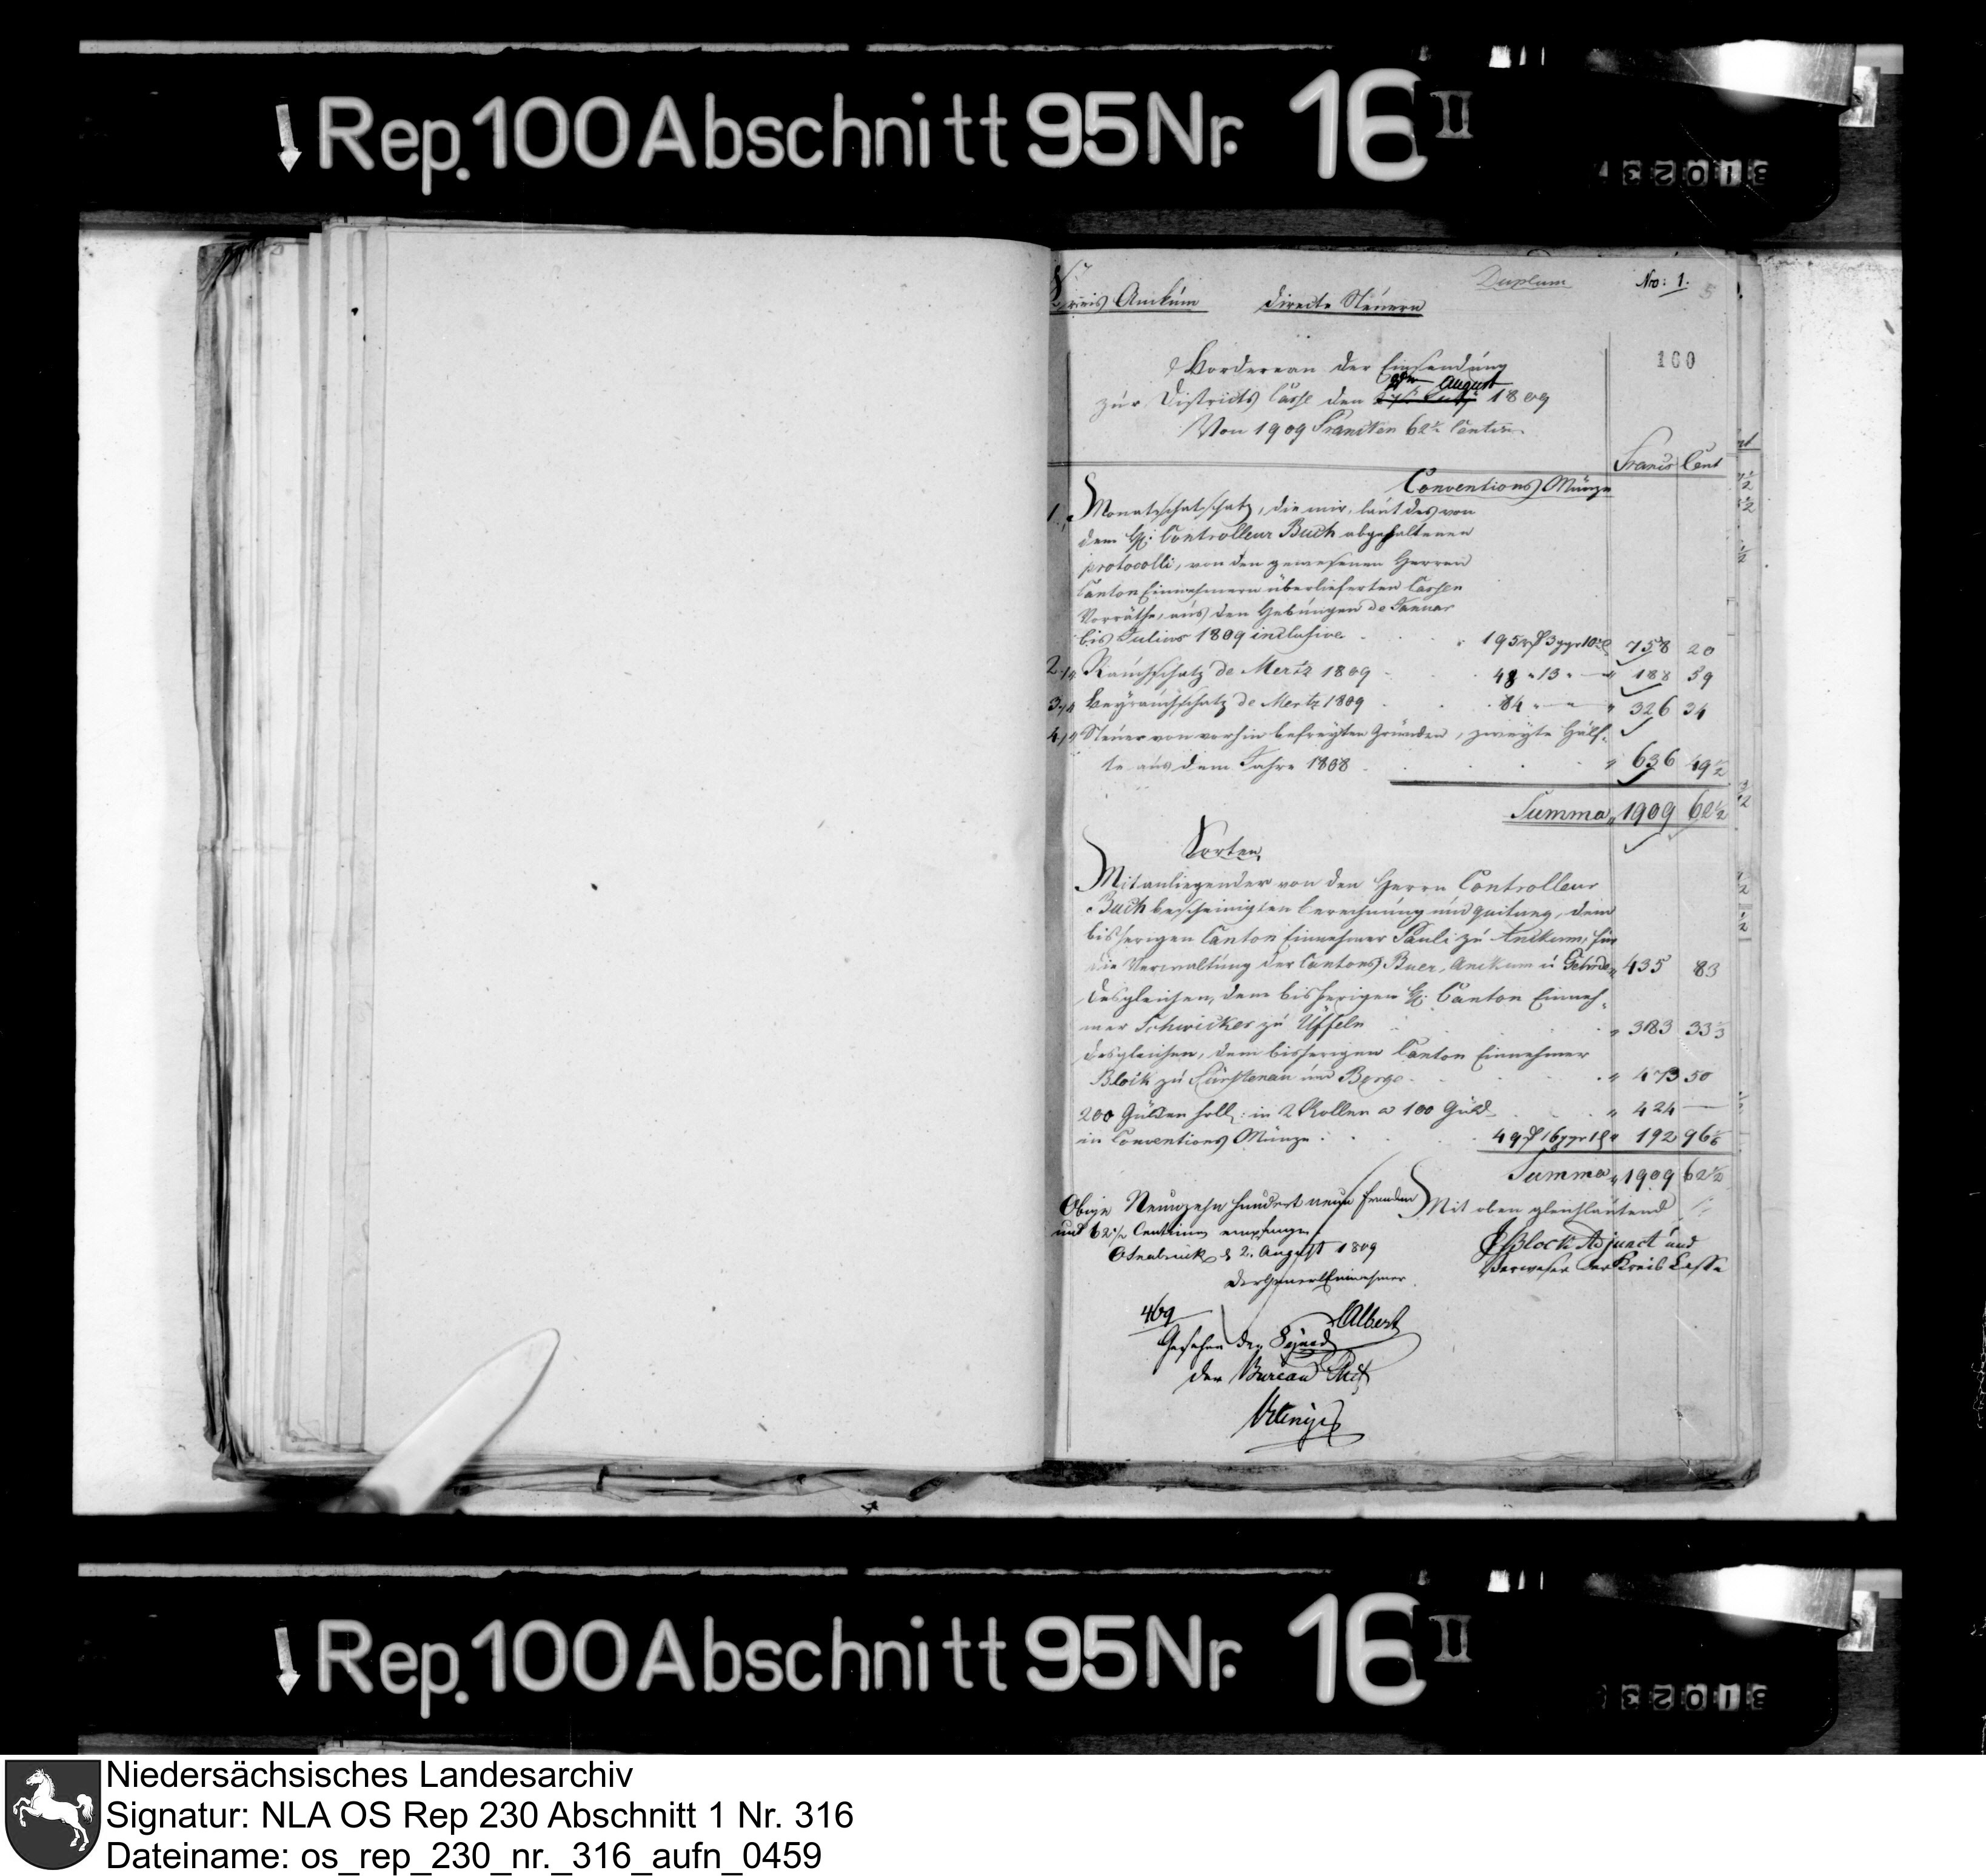 Rep. 100 Abschnitt 95 Nr. 16 II
Duplum
Nro: 1.
5
Kreis Anckum directe Steuern
100
Bordereau der Einsendung
zur Districts Casse den 2ten August 1809
Von 1909 Francken 62½ Centim.
Francs Cent
Conventions Münze
1., Monatschatzschatz, die mir, laut des von
dem H: Controlleur Buch abgehaltenen
protocolli, von den gewesenen Herren
Canton Einnehmern überlieferten Cassen
Vorräthe, aus den Hebungen de Januar
bis Julius 1809 inclusive 195 rf 3 ggr 10 758 20
2., Rauchschatz de Mertz 1809 48 " 13 " — " 188 59
3., Beyrauchschatz de Mertz 1809 84 " — " — " 326 34
4., Steuer von vorhin befreyten Gründen, zweyte Hälf-
te aus dem Jahre 1808 " 636 49½
Summa " 1909 62½
Sorten,
Mit anliegender von den Herrn Controlleur
Buch bescheinigten berechnung und quitung, dem
bisherigen Canton Einnehmer Pauli zu Anckum, für
die Verwaltung der Cantons Buer, Anckum u Gehrde " 435 83
desgleichen, dem bisherigen H: Canton Einneh-
mer Schwicker zu Üffeln " 383 33⅓
desgleichen, dem bisherigen Canton Einnehmer
Block zu Fürstenau und Berge " 473 50
200 Gulden holl: in 2 Rollen a 100 Guld " 424 —
in Conventions Münze 49 rf 16 ggr 1 " 192 96⅙
Summa " 1909 62½
Obige Neunzehn hundert neun Franken
und 62½ Centimen empfangen
Osnabrück d 2. August 1809
Der General Einnehmer
Albert
Mit oben gleichlautend
Block Adjunct und
Verweser der Kreis Casse
469
Gesehen der
der Bureau Chef
Rep. 100 Abschnitt 95 Nr. 16 II
Niedersächsisches Landesarchiv
Signatur: NLA OS Rep 230 Abschnitt 1 Nr. 316
Dateiname: os_rep_230_nr._316_aufn_0459